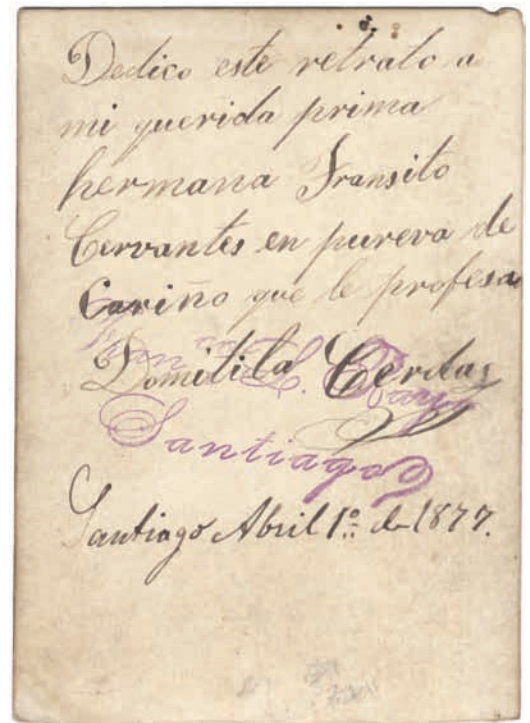 Dedico este retrato a
mi querida prima
hermana Transito
Cervantes en pureva de
Cariño que le profesa
Domitila Cerda
L.
Santiago
Santiago Abril 1º de 1877.